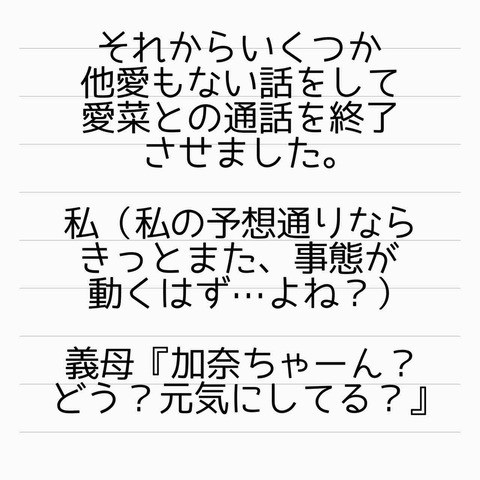 それからいくつか
他愛もない話をして
愛菜との通話を終了
させました。
私（私の予想通りなら
きっとまた、事態が
動くはず…よね？）
義母『加奈ちゃーん？
どう？元気にしてる？』